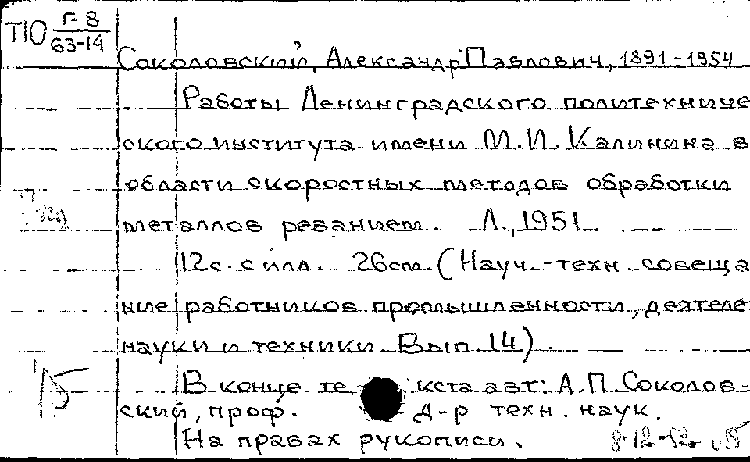 Т10 Г-8
63-14
Соколовский, Александр Павлович, 1891-1954
Работы Ленинградского политехниче
ского института имени М.И. Калинина в
области скоростных методов обработки
металлов резанием. Л., 1951
12с. с илл. 26см. (Науч.-техн. совеща
ние работников промышленности, деятеле
науки и техники. Вып. 14).
В конце текста авт: А.П. Соколов-
ский, проф. д-р техн. наук.
На правах рукописи.